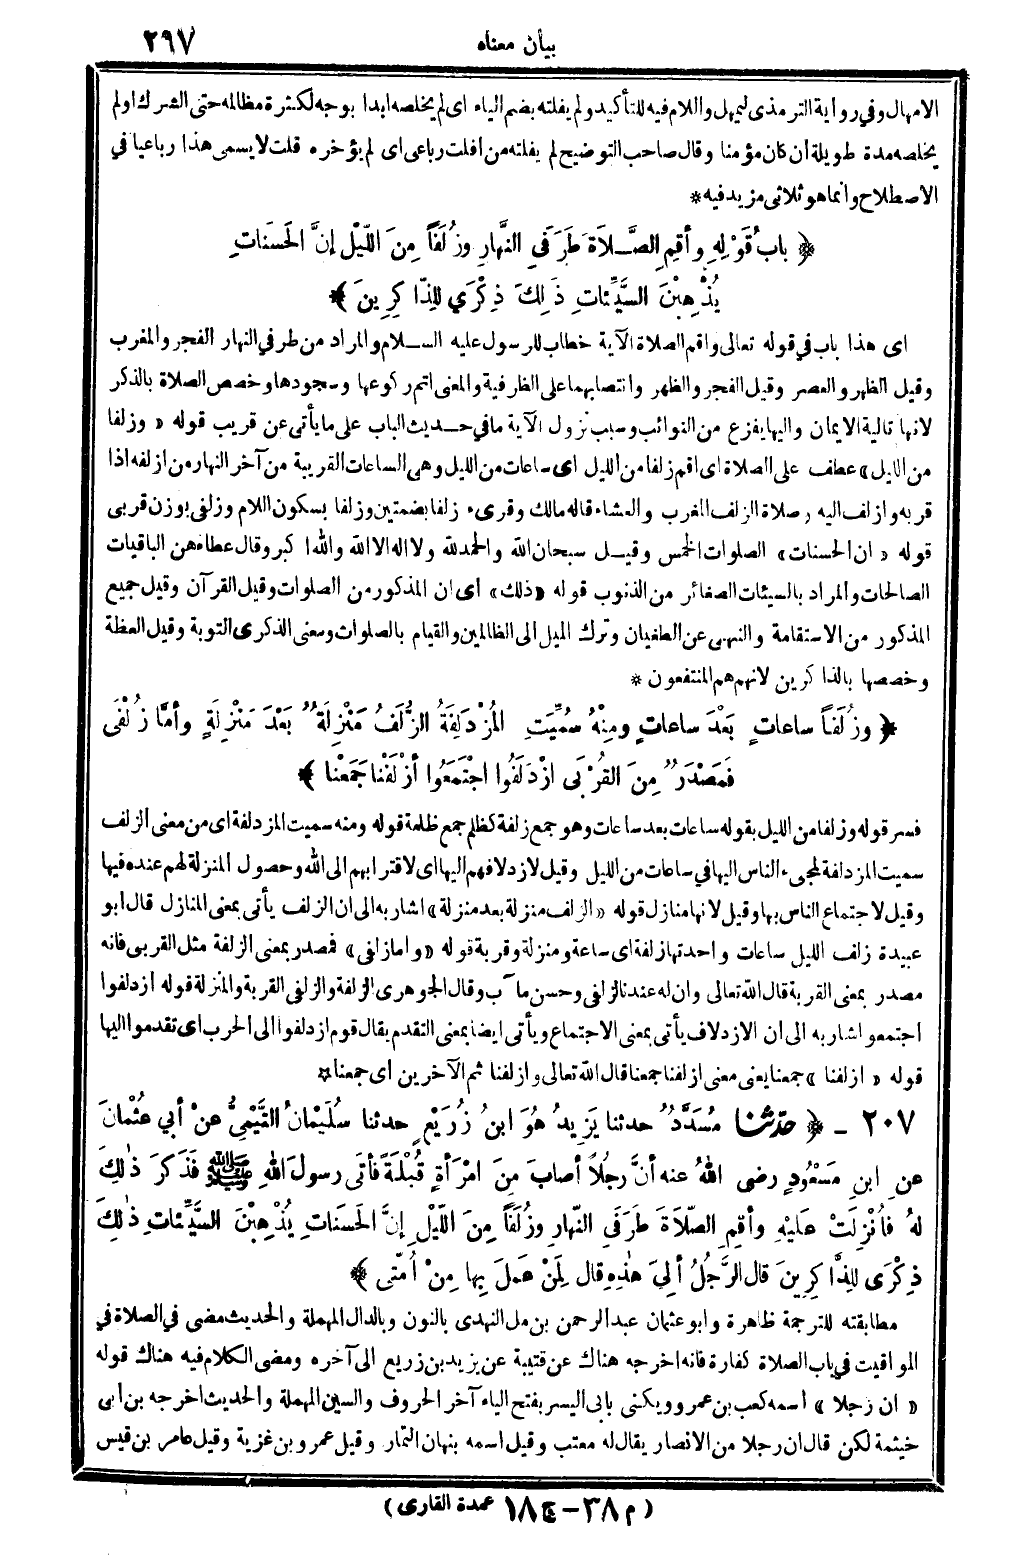 بيان معناه
٢٩٧
الامهال وفي رواية الترمذى ليمهل واللام فيه للتأكيد ولم يفلته بضم الياء اى لم يخلصه ابدا بوجه لكثرة مظالمه حتى الشرك او لم
يخلصه مدة طويلة أن كان مؤمنا وقال صاحب التوضيح لم يفلته من أفلت رباعى اى لم يؤخره قلت لا يسمى هذا رباعيا في
الاصطلاح وانما هو ثلاثى مزيد فيه *
﴿ بابُ قَوْلِهِ وأقِمِ الصَّلاَةَ طَرَفَيِ النَّهارِ وزُلَفاً مِنَ اللّيْلِ إنَّ الحَسَنَاتِ
يُذْهِبْنَ السَّيِّئاتِ ذَلِكَ ذِكْرَي لِلذّاكِرِينَ ﴾
اى هذا باب في قوله تعالى واقم الصلاة الآية خطاب للرسول عليه السلام والمراد من طرفي النهار الفجر والمغرب
وقيل الظهر والعصر وقيل الفجر والظهر وانتصابهما على الظرفية والمعنى اتم ركوعها وسجودها وخصص الصلاة بالذكر
لانها تالية الايمان واليها يفزع من النوائب وسبب نزول الآية ما في حديث الباب على ما يأتى عن قريب قوله « وزلفا
من الليل » عطف على الصلاة اى اقم زلفا من الليل اى ساعات من الليل وهى الساعات القريبة من آخر النهار من ازلفه اذا
قربه وازلف اليه وصلاة الزلف المغرب والعشاء قاله مالك وقرىء زلفا بضمتين وزلفا بسكون اللام وزلفى بوزن قربى
قوله « ان الحسنات » الصلوات الخمس وقيل سبحان الله والحمد لله ولا اله الا الله والله اكبر وقال عطاء هن الباقيات
الصالحات والمراد بالسيئات الصغائر من الذنوب قوله « ذلك » اى ان المذكور من الصلوات وقيل القرآن وقيل جميع
المذكور من الاستقامة والنهى عن الطغيان وترك الميل الى الظالمين والقيام بالصلوات ومعنى الذكرى التوبة وقيل العظة
وخصصها بالذاكرين لانهم هم المنتفعون *
﴿ وزُلَفاً ساعاتٍ بَعْدَ ساعاتٍ ومِنْهُ سُمِّيَتِ المُزْدَلِفَةُ الزُّلَفُ مَنْزِلَةٌ بَعْدَ مَنْزِلَةٍ وأمَّا زُلْفَى
فَمَصْدَرٌ مِنَ القُرْبَى ازْدَلَفُوا اجْتَمَعُوا أزْلَفْنا جَمَعْنا ﴾
فسر قوله وزلفا من الليل بقوله ساعات بعد ساعات وهو جمع زلفة كظلم جمع ظلمة قوله ومنه سميت المزدلفة اى من معنى الزلف
سميت المزدلفة لمجىء الناس اليها في ساعات من الليل وقيل لازدلافهم اليها اى لاقترابهم الى الله وحصول المنزلة لهم عنده فيها
وقيل لاجتماع الناس بها وقيل لانها منازل قوله « الزلف منزلة بعد منزلة » اشار به الى ان الزلف يأتى بمعنى المنازل قال أبو
عبيدة زلف الليل ساعات واحدتها زلفة اى ساعة ومنزلة وقربة قوله « وامازلفى » فمصدر بمعنى الزلفة مثل القربى فانه
مصدر بمعنى القربة قال الله تعالى وان له عندنا لزلفى وحسن مآب وقال الجوهرى الزلفة والزلفى القربة والمنزلة قوله ازدلفوا
اجتمعوا اشار به الى ان الازدلاف يأتى بمعنى الاجتماع ويأتى ايضا بمعنى التقدم يقال قوم ازدلفوا الى الحرب اى تقدموا اليها
قوله « ازلفنا » جمعنا يعنى معنى ازلفنا جمعنا قال الله تعالى وازلفنا ثم الآخرين اى جمعنا *
٢٠٧ - ﴿ حدّثنا مُسَدَّدٌ حدثنا يَزِيدُ هُوَ ابنُ زُرَيْعٍ حدثنا سُلَيْمانُ التَّيْمِيُّ عنْ أبي عُثْمانَ
عنِ ابنِ مَسْعُودٍ رضى اللهُ عنه أنَّ رجُلاً أصابَ مِنَ امْرَأةٍ قُبْلَةً فأتَى رسولَ اللهِ ﷺ فَذَكَرَ ذٰلِكَ
لهُ فأُنْزِلَتْ عَلَيْهِ وأقِمِ الصّلَاةَ طَرَفَيِ النّهارِ وزُلَفاً مِنَ اللّيْلِ إنَّ الحَسَنَاتِ يُذْهِبْنَ السَّيِّئاتِ ذٰلِكَ
ذِكْرَى لِلذَّاكِرِينَ قال الرَّجُلُ أَلِيَ هٰذِهِ قال لِمَنْ عَمِلَ بِها مِنْ أُمَّتى ﴾
مطابقته للترجمة ظاهرة وابو عثمان عبد الرحمن بن مل النهدى بالنون وبالدال المهملة والحديث مضى في الصلاة في
المواقيت في باب الصلاة كفارة فانه اخرجه هناك عن قتيبة عن يزيد بن زريع الى آخره ومضى الكلام فيه هناك قوله
« ان رجلا » اسمه كعب بن عمرو ويكنى بابى اليسر بفتح الياء آخر الحروف والسين المهملة والحديث اخرجه بن أبى
خيثمة لكن قال ان رجلا من الانصار يقال له معتب وقيل اسمه بنهان التمار وقيل عمرو بن غزية وقيل عامر بن قيس
( م ٣٨ - ج ١٨ عمدة القارى )